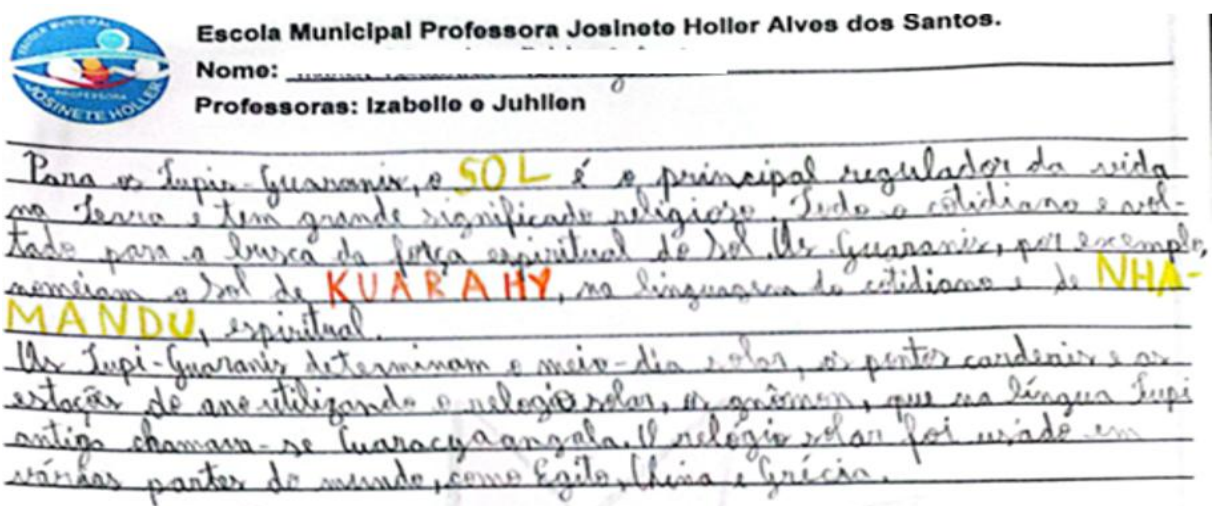 ESCOLA MUNICIPAL
PROFESSORA
JOSINETE HOLLER
Escola Municipal Professora Josinete Holler Alves dos Santos.
Nome:
Professoras: Izabelle e Juhllen
Para os Tupis-Guaranis, o SOL é o principal regulador da vida
na Terra e tem grande significado religioso. Todo o cotidiano e vol-
tado para a busca da força espiritual do Sol. Os Guaranis, por exemplo,
nomeiam o Sol de KUARAHY, na linguagem do cotidiano e de NHA-
MANDU, espiritual.
Os Tupi-Guaranis determinam o meio-dia solar, os pontos cardeais e as
estações do ano utilizando o relogio solar, os gnômon, que na língua Tupi
antigo chamava-se O relógio solar foi usado em
várias partes do mundo, como Egito, China e Grécia.